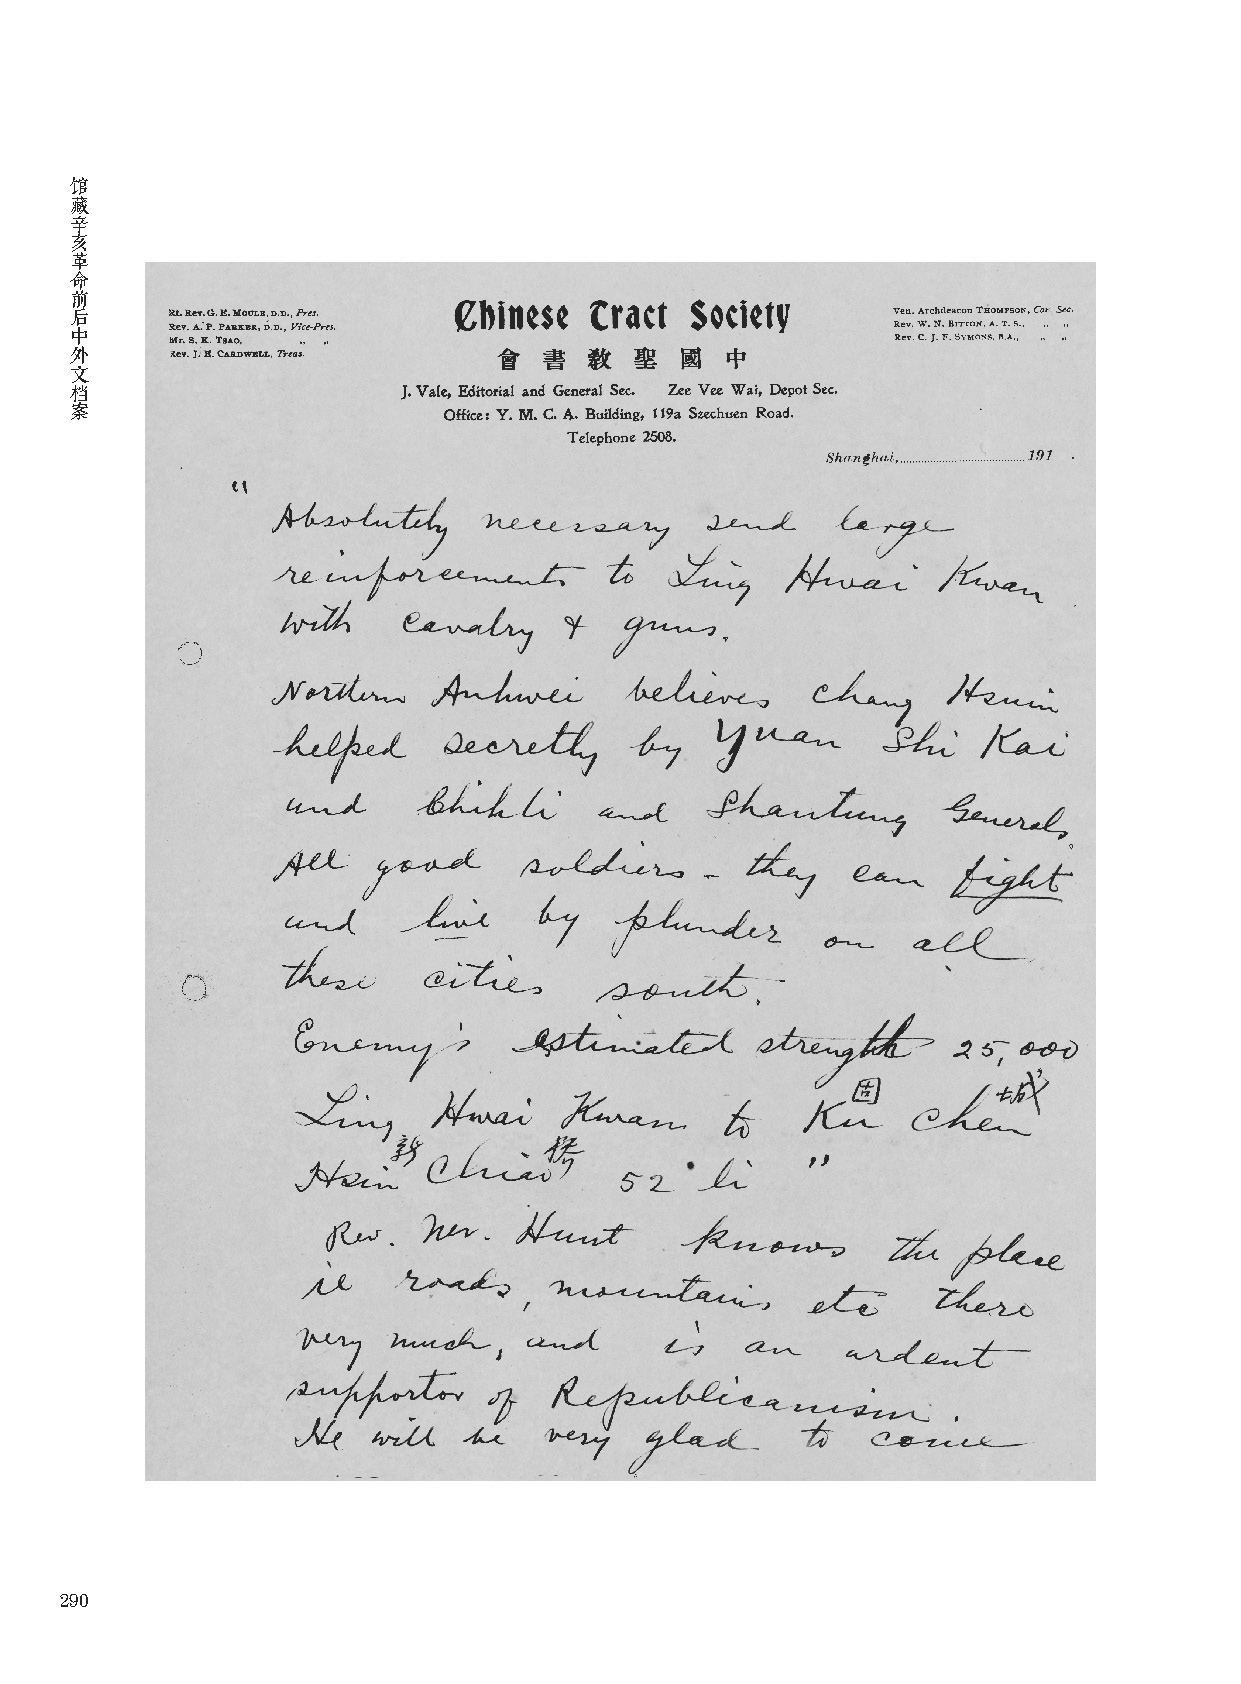 馆藏辛亥革命前后中外文档案
Rt. Rev. G. E. MOULE, D.D., Pres.
Rev. A. P. PARKER, D.D., Vice-Pres.
Mr. S. K. TSAO, " "
Rev. J. H. CARDWELL, Treas.
Chinese Tract Society
會書敎聖國中
J. Vale, Editorial and General Sec. Zee Vee Wai, Depot Sec.
Office: Y. M. C. A. Building, 119a Szechuen Road.
Telephone 2508.
Ven. Archdeacon THOMPSON, Cor. Sec.
Rev. W. N. BITTON, A. T. S., " "
Rev. C. J. F. SYMONS, B.A., " "
Shanghai, 191 .
"
Absolutely necessary send large
reinforcements to Ling Hwai Kwan
with cavalry & guns.
Northern Anhwei believes Chang Hsuin
helped secretly by Yuan Shi Kai
and Chihli and Shantung Generals.
All good soldiers - they can fight
and live by plunder on all
these cities south.
Enemy's estimated strength 25,000
固 城
Ling Hwai Kwan to Ku Chen
新 橋
Hsin Chiao 52 li "
Rev. Hunt knows the place
ie roads, mountains etc there
very much, and is an ardent
supportor of Republicanism.
He will be very glad to come
290